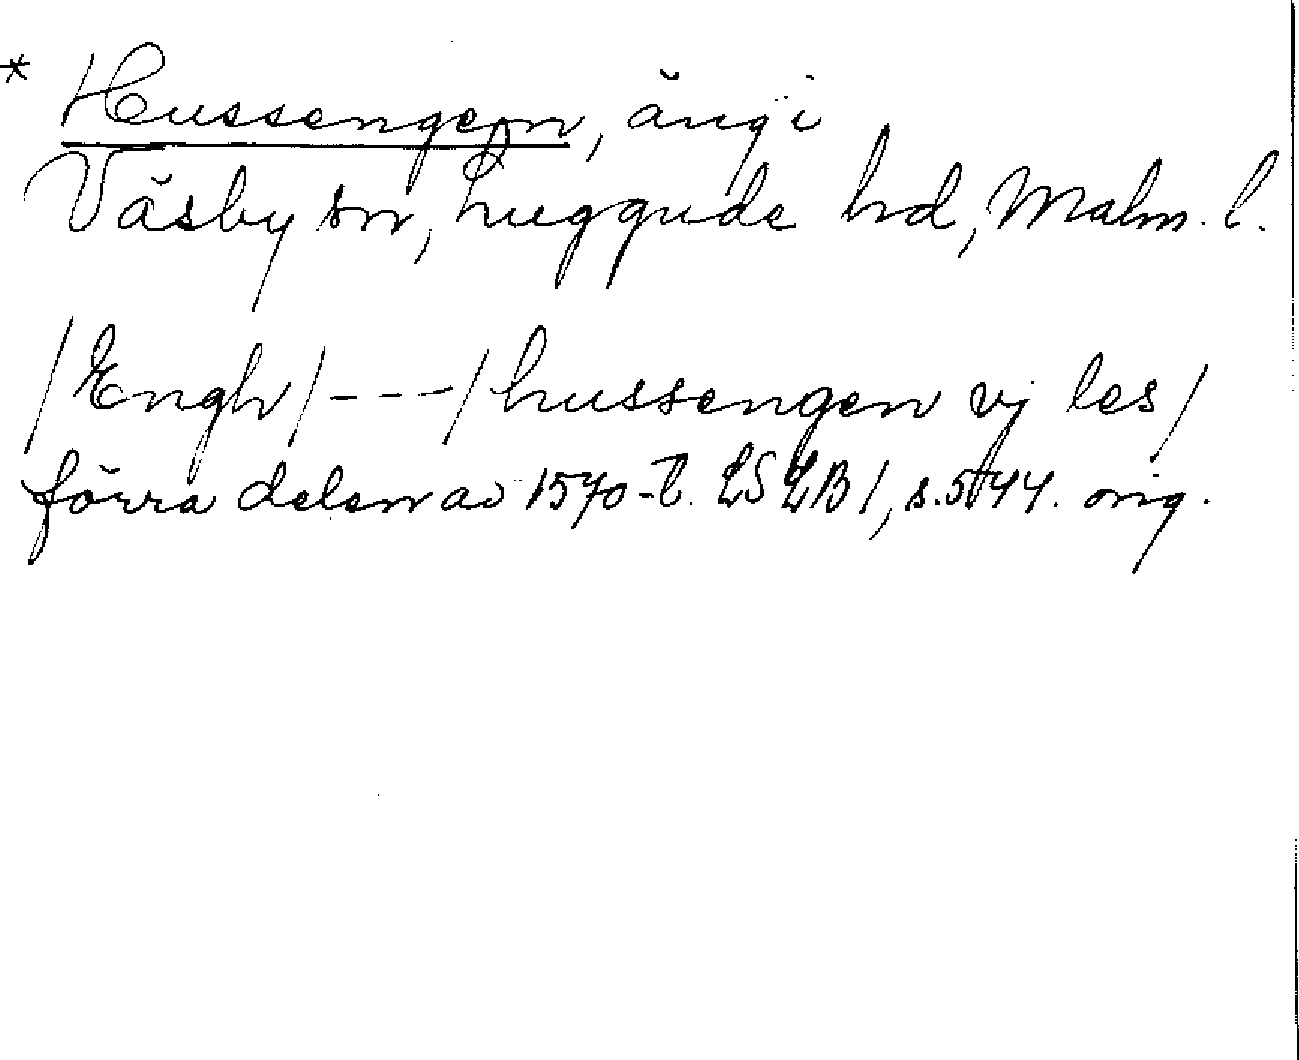 * Hussengen, äng i
Väsby sn, Luggude hd, Malm. l.
/Engh/ --- / hussengen vj les /
förra delen av 1570-t. LSLB 1, s. 544. orig.